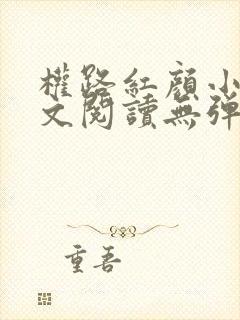 權路紅顏小
文閱讀無彈
重吾